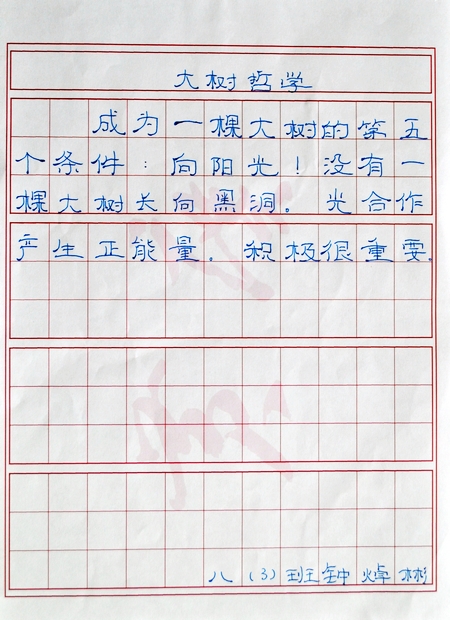 大树哲学
成为一棵大树的第五
个条件：向阳光！没有一
棵大树长向黑洞。光合作
产生正能量。积极很重要.
八(3)班钟焯彬